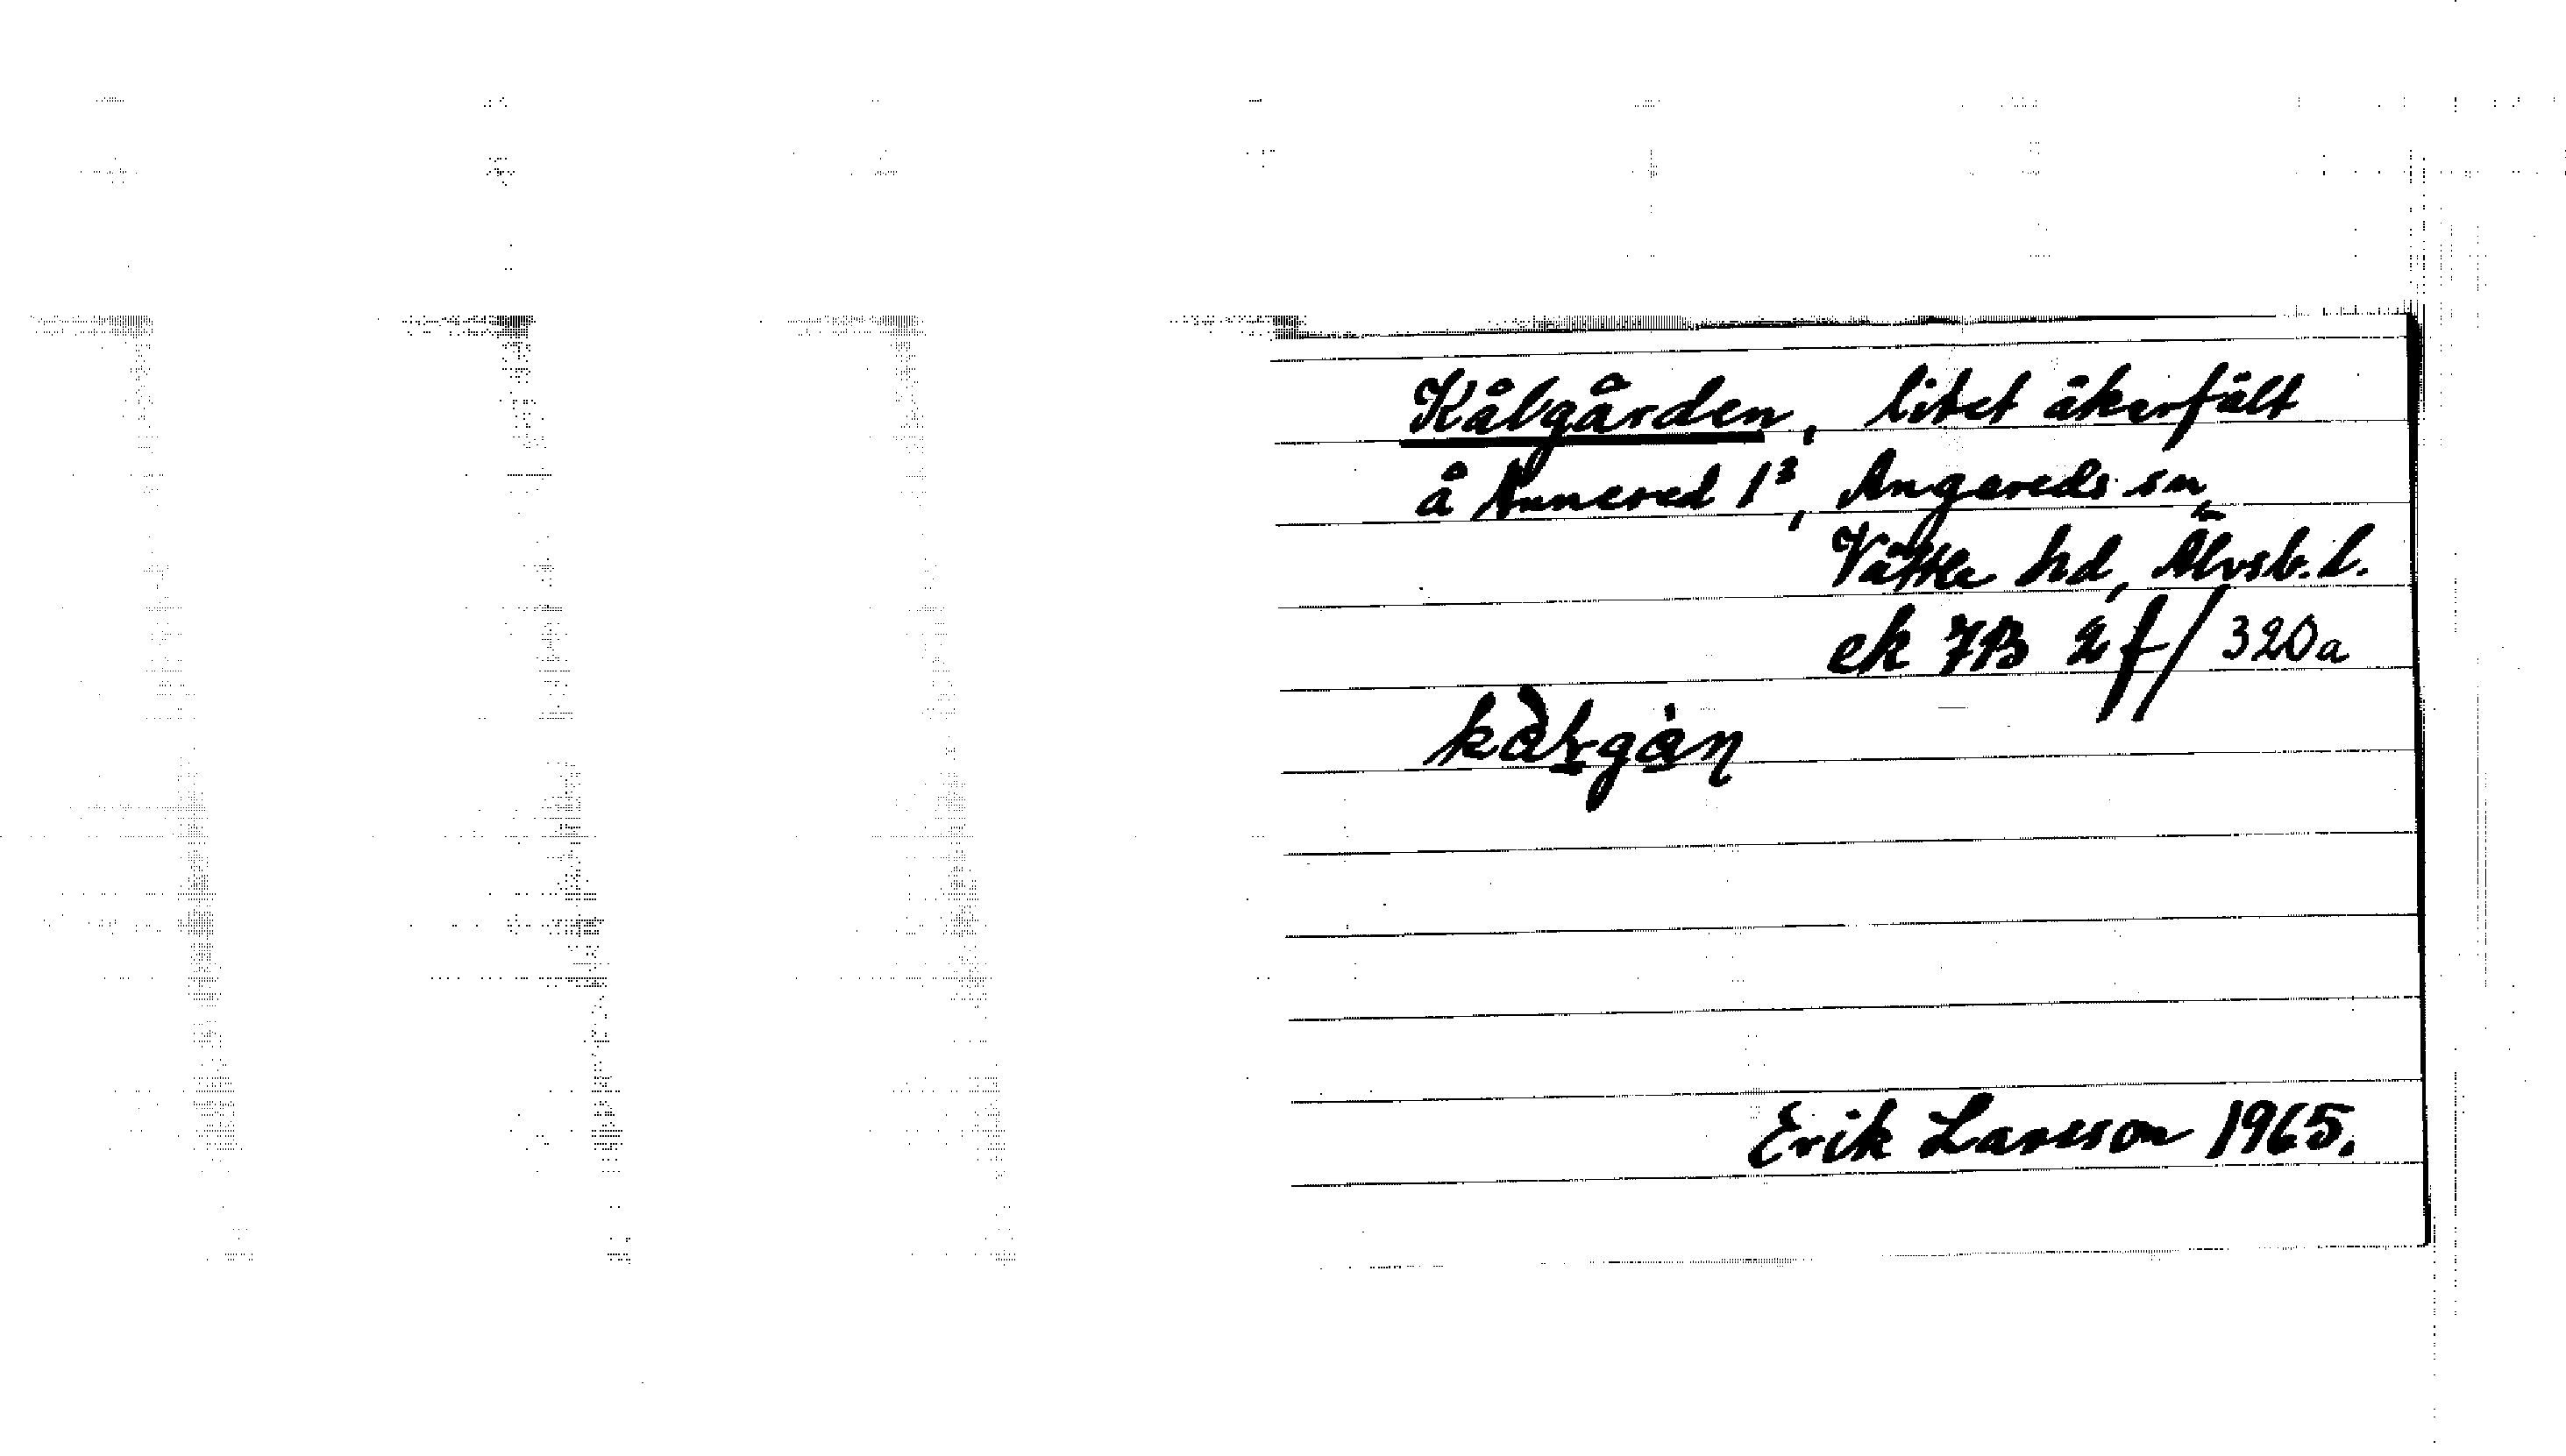 Kålgården, litet åkerfält
å Annered 1³, Angereds sn,
Vättle hd, Älvsb. l.
ek 7B 2f/320a
Erik Larsson 1965.